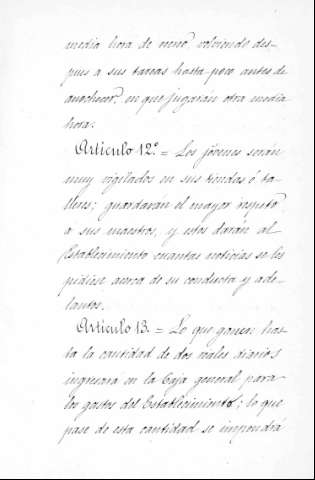 media hora de recreo volviendo des-
pues a sus tareas hasta poco antes de
anochecer, en que jugarán otra media
hora.
Artículo 12.º = Los jóvenes serán
muy vigilados en sus tiendas ó ta-
lleres; guardarán el mayor respeto
a sus maestros, y estos darán al
Establecimiento cuantas noticias se les
pidiese acerca de su conducta y ade-
lantos.
Artículo 13. = Lo que ganen has-
ta la cantidad de dos reales diarios
ingresará en la Caja general para
los gastos del Establecimiento; lo que
pase de esta cantidad se impondrá